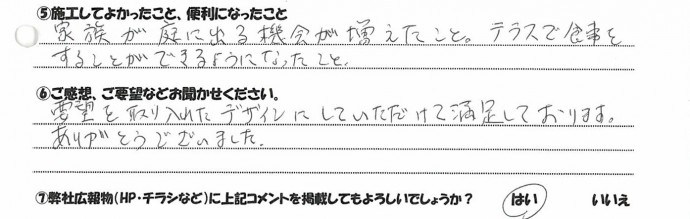 ⑤施工してよかったこと、便利になったこと
家族が庭に出る機会が増えたこと。テラスで食事を
することができるようになったこと。
⑥ご感想、ご要望などお聞かせください。
要望を取り入れたデザインにしていただけて満足しております。
ありがとうございました。
⑦弊社広報物(HP・チラシなど)に上記コメントを掲載してもよろしいでしょうか? はい いいえ